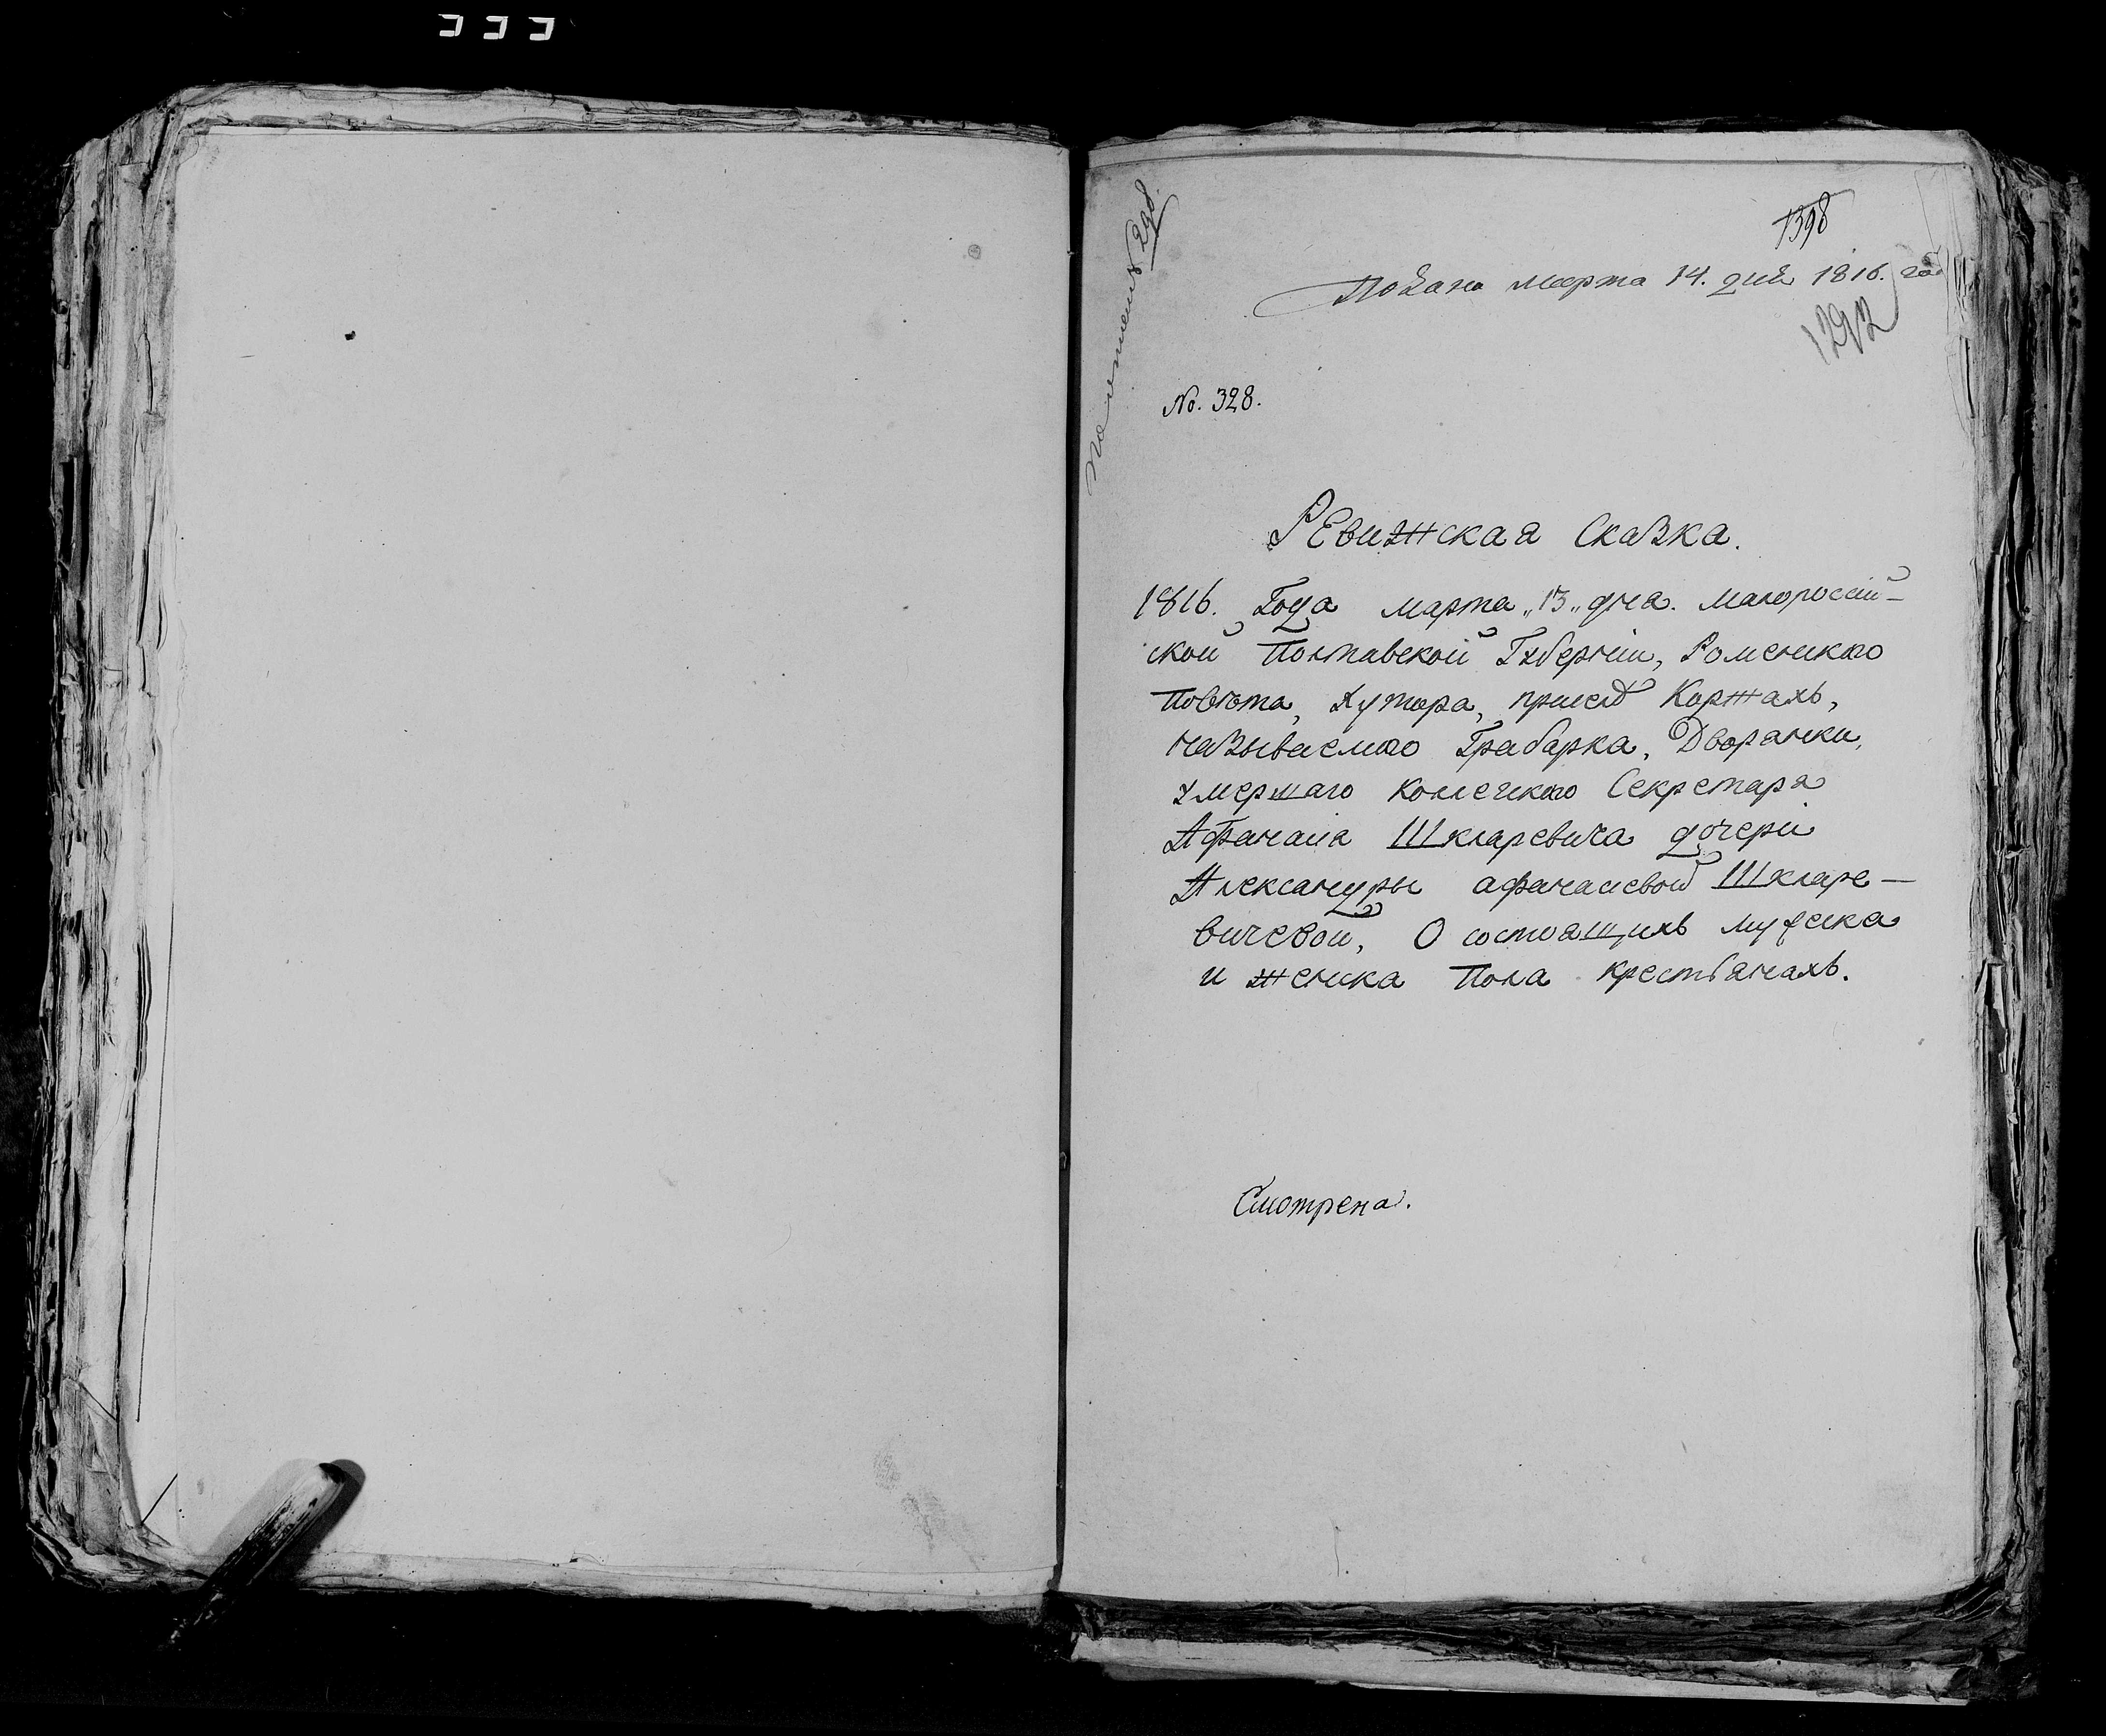 1398
Подана марта 14. дня 1816. год
1292
№ 298.
No. 328.
Ревижская Сказка.
1816. Года марта „13„ дня. малороссій-
ской Полтавской Губерніи, Роменскаго
Повѣта, Хутора, при селѣ Коржахъ,
называемаго Грабарка, Дворянки,
умершаго колежскаго Секретаря
Афанасія Шкляревича дочери
Александры афанасіевой Шкляре-
вичевой, О состоящихъ мужеска
и женска пола крестьянахъ.
Смотрена.